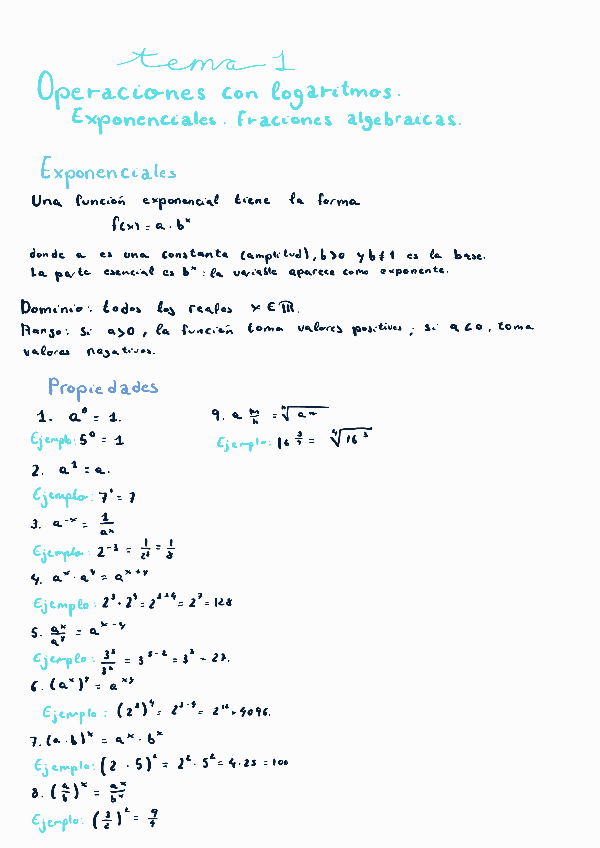 tema 1
Operaciones con logaritmos.
Exponenciales. Fraciones algebraicas.
Exponenciales
Una función exponencial tiene la forma
f(x) = a · bˣ
donde a es una constante (amplitud), b>0 y b≠1 es la base.
La parte esencial es bˣ: la variable aparece como exponente.
Dominio: todos los reales x ∈ ℝ.
Rango: si a>0, la función toma valores positivos; si a<0, toma
valores negativos.
Propiedades
1. a⁰ = 1.
Ejemplo: 5⁰ = 1
2. a¹ = a.
Ejemplo: 7¹ = 7
3. a⁻ˣ = 1/aˣ
Ejemplo: 2⁻³ = 1/2³ = 1/8
4. aˣ · aʸ = aˣ⁺ʸ
Ejemplo: 2³ · 2⁴ = 2³⁺⁴ = 2⁷ = 128
5. aˣ/aʸ = aˣ⁻ʸ
Ejemplo: 3⁵/3² = 3⁵⁻² = 3³ = 27.
6. (aˣ)ʸ = aˣʸ
Ejemplo: (2³)⁴ = 2³·⁴ = 2¹² = 4096.
7. (a · b)ˣ = aˣ · bˣ
Ejemplo: (2 · 5)² = 2² · 5² = 4 · 25 = 100
8. (a/b)ˣ = aˣ/bˣ
Ejemplo: (3/2)² = 9/4
9. a m/n = ⁿ√aᵐ
Ejemplo: 16 3/4 = ⁴√16³